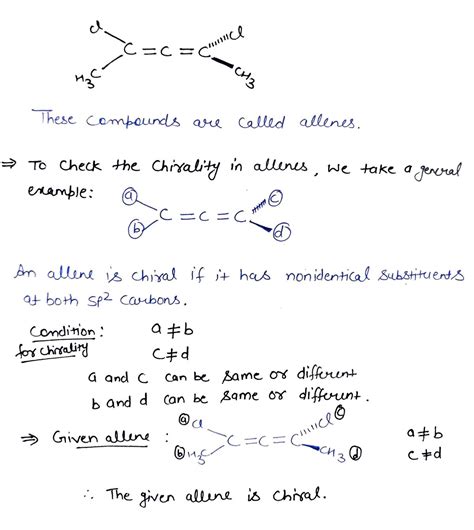 Cl Cl
C=C=C
H₃C CH₃
These compounds are called allenes.
⇒ To check the chirality in allenes, we take a general
example:
a c
C=C=C
b d
An allene is chiral if it has nonidentical substituents
at both sp² carbons.
Condition: a≠b
for chirality c≠d
a and c can be same or different
b and d can be same or different.
⇒ Given allene : a Cl Cl c a≠b
C=C=C
b H₃C CH₃ d c≠d
∴ The given allene is chiral.